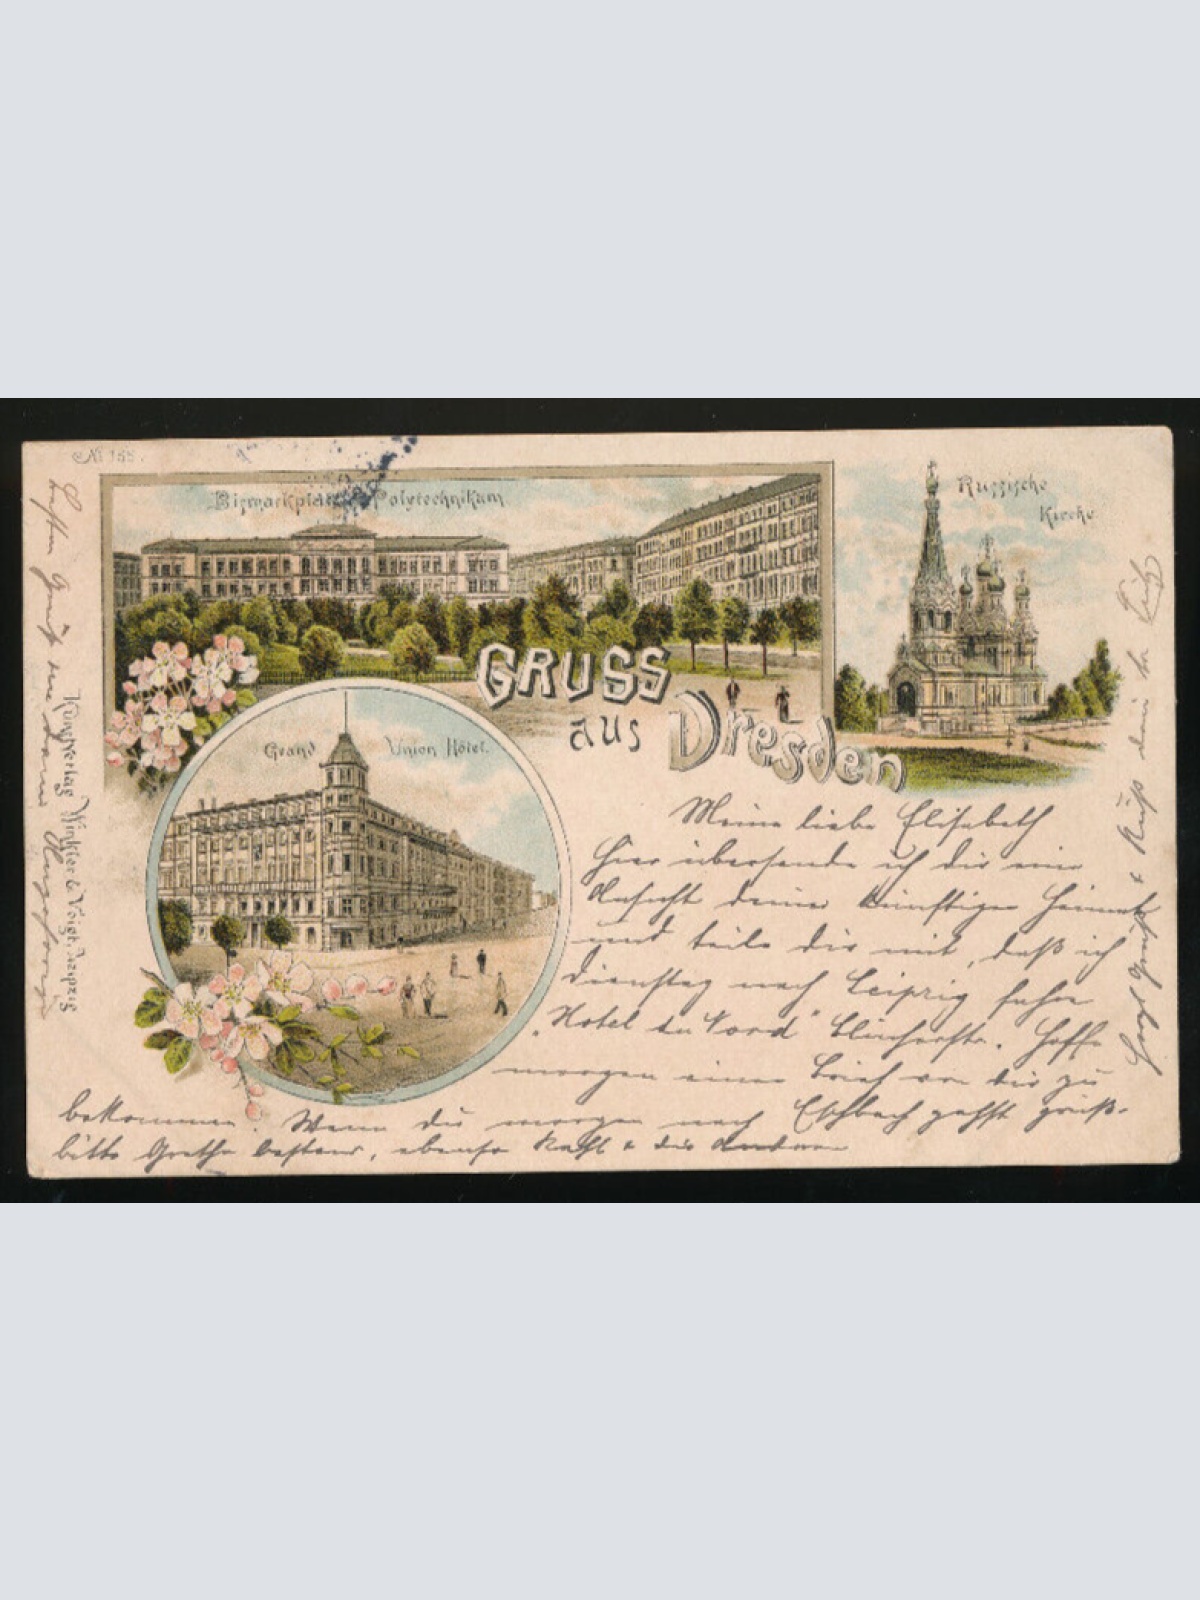 No 155.
Bismarckplatz & Polytechnikum
Russische
Kirche.
GRUSS
aus
Dresden
Grand Union Hôtel.
Kunstverlag Winkler & Voigt, Leipzig
Meine liebe Elisabeth
Hier übersende ich dir eine
Ansicht deiner künftigen Heimat
und teile dir mit, daß ich
dienstag nach Leipzig fahre
"Hotel du Nord" Blücherstr. Hoffe
morgen einen Brief von dir zu
bekommen. Wenn du morgen nach Eschbach gehst grüß-
bitte Grethe bestens, ebenso & die Anderen
Gruß & Kuß dein tr. Fritz
Besten Gruß